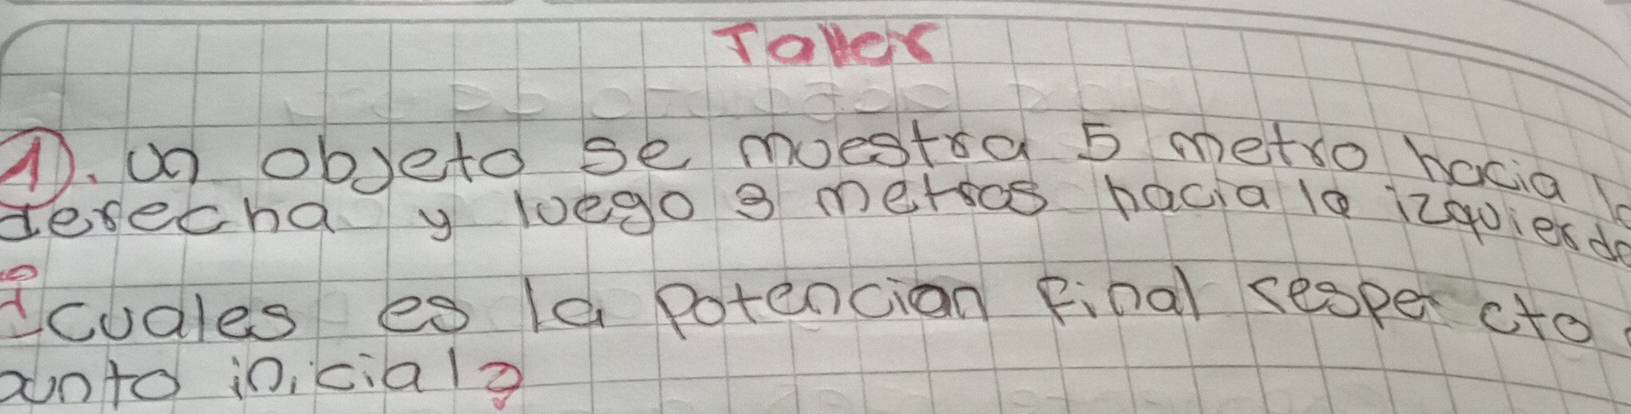 Taller
1). un objeto se muestra 5 metro hacia
derecha y luego 3 metros hacia la izquierda
¿cuales es la Potencian Final respecto
unto inicial?